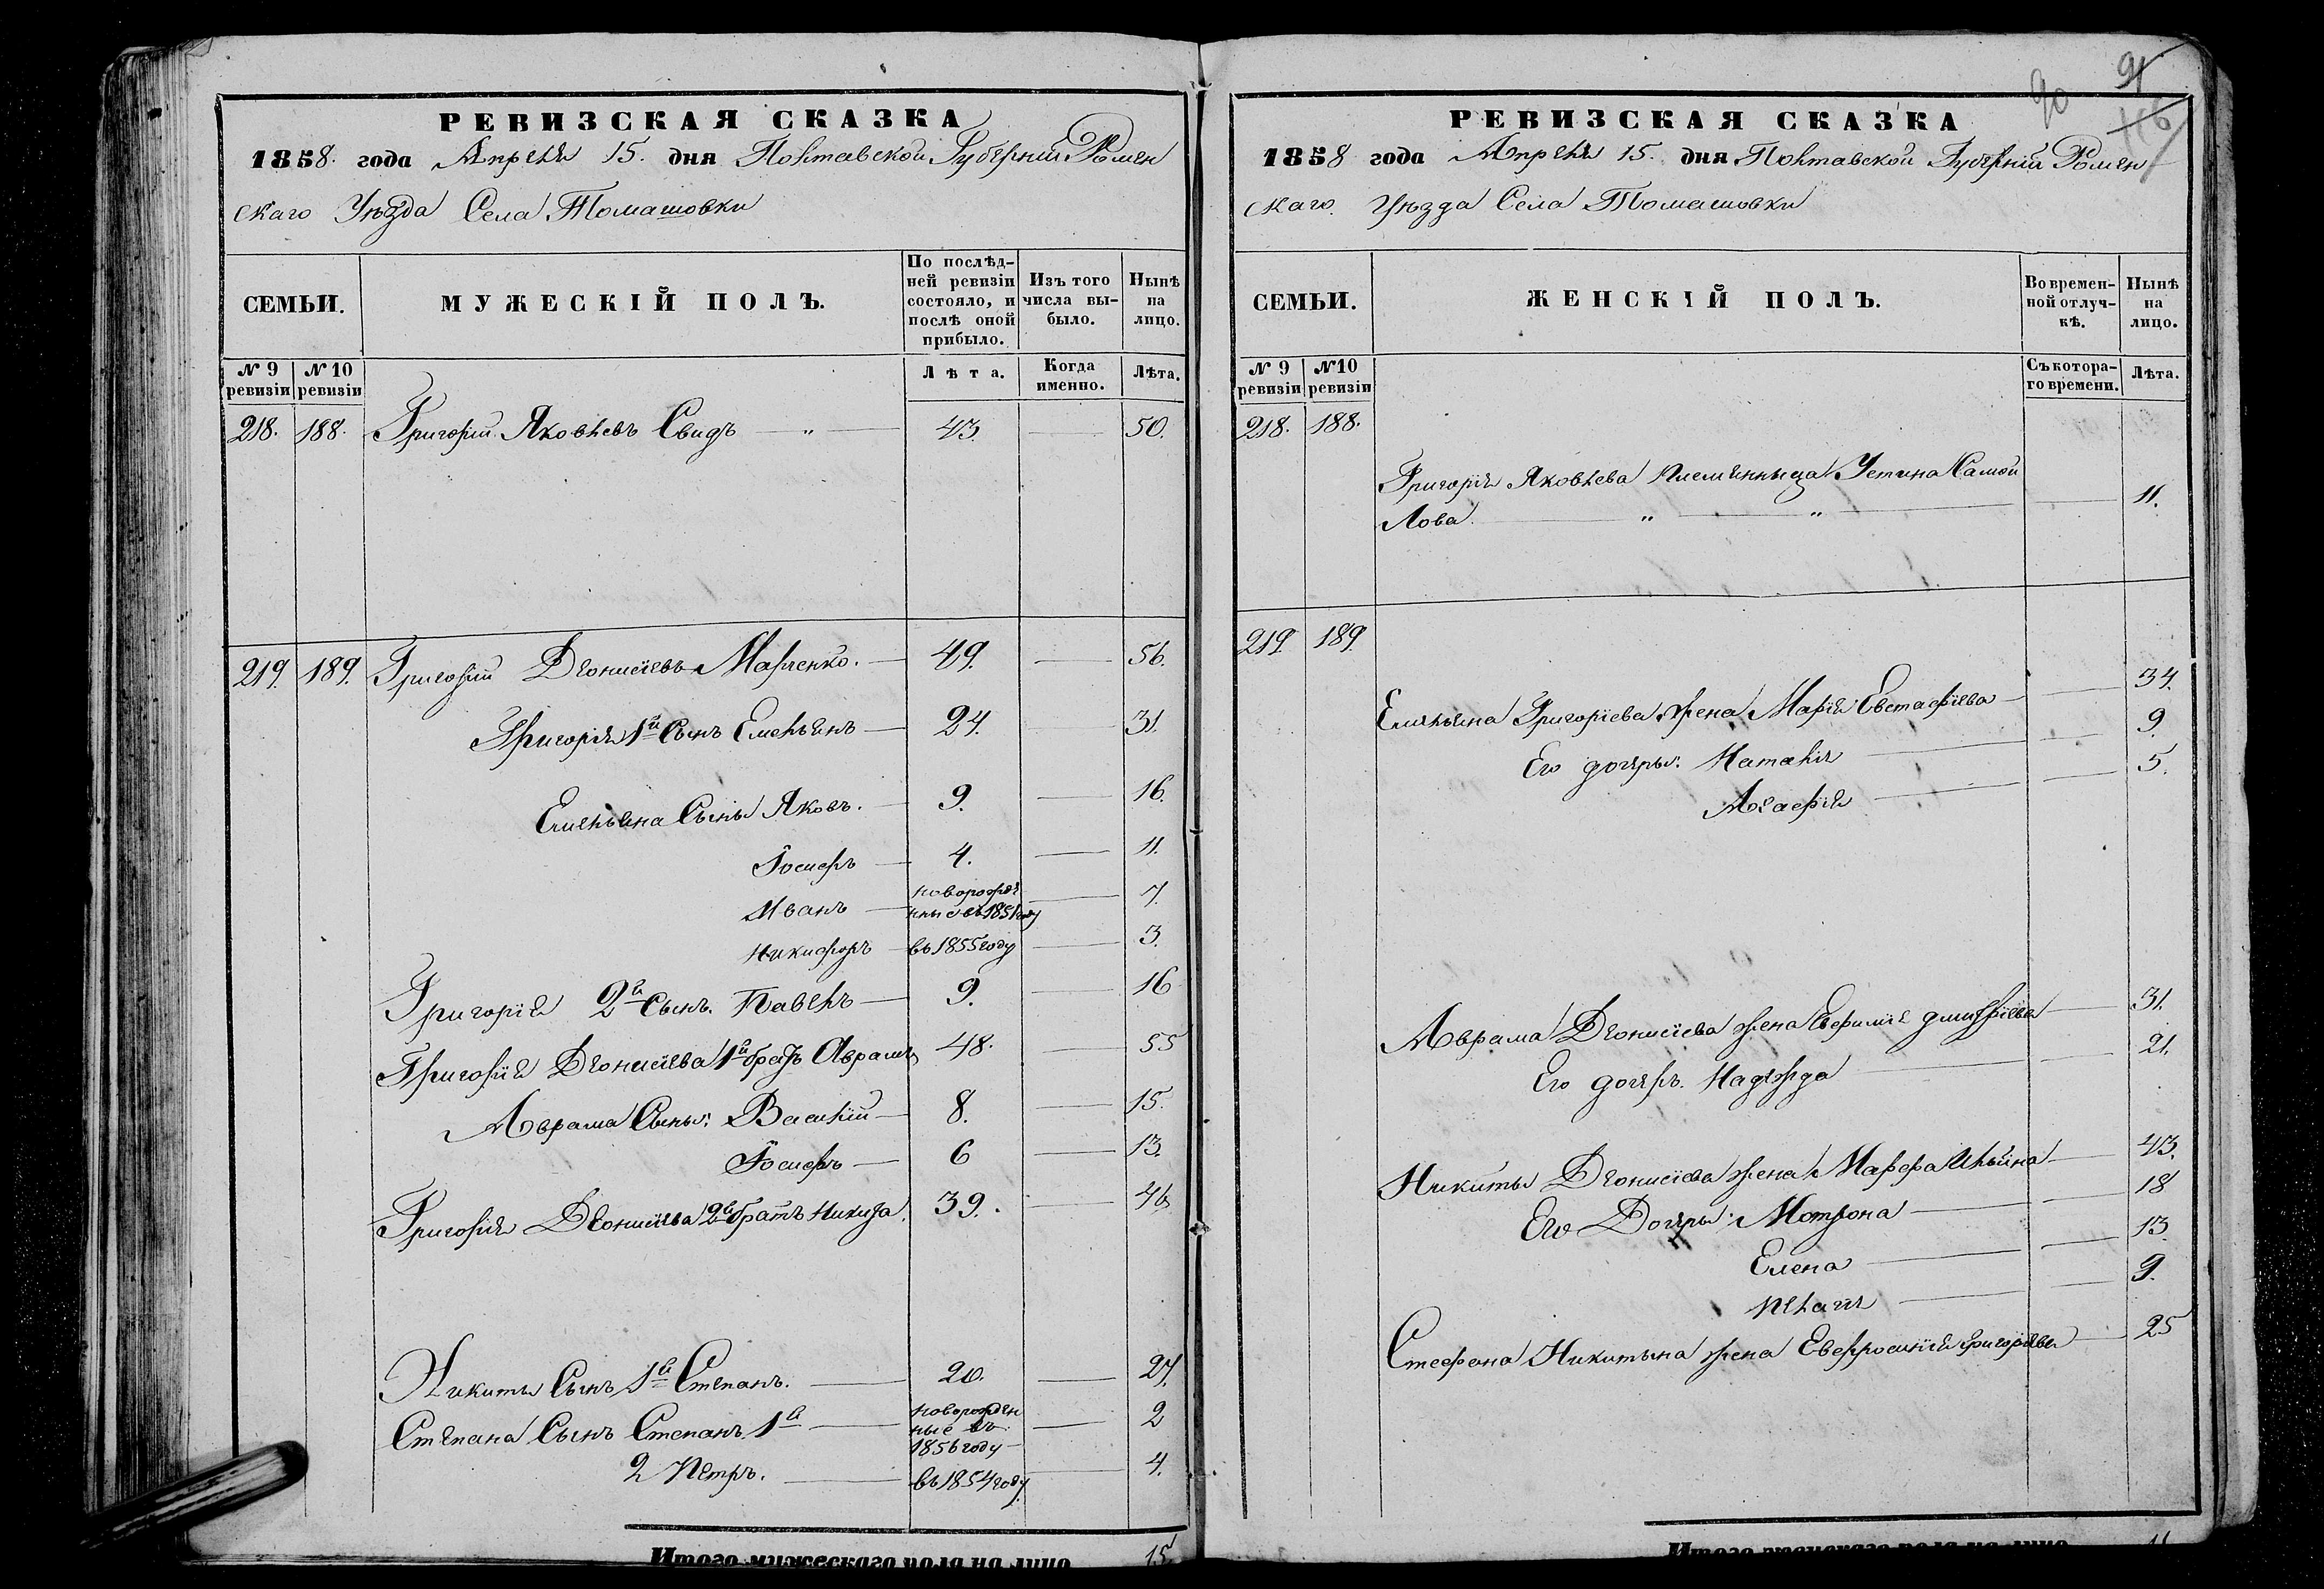 РЕВИЗСКАЯ СКАЗКА
1858. года Апреля 15. дня Полтавской Губерніи Ромен
скаго Уѣзда Села Томашовки
СЕМЬИ.
МУЖЕСКІЙ ПОЛЪ.
По послѣд-
ней ревизіи
состояло, и
послѣ оной
прибыло.
Изъ того
числа вы-
было.
Нынѣ
на
лицо.
№ 9
ревизіи
№ 10
ревизіи
Лѣта.
Когда
именно.
Лѣта.
218. 188. Григорій Яковлевъ Свидъ — „ — 43 — 50.
219. 189. Григорій Діонисіевъ Марченко. — 49. — 56.
Григорія 1й Сынъ Емельянъ — 24. — 31.
Емельяна Сыны Яковъ. — 9. — 16.
Іосифъ — 4. — 11.
Иванъ — новорожде
нные въ 1851 году — 7.
Никифоръ — въ 1855 году — 3.
Григорія 2й Сынъ. Павелъ — 9. — 16
Григорія Діонисіева 1й братъ Аврамъ 48. — 55
Аврама Сыны: Василій — 8. — 15.
Іосифъ — 6 — 13.
Григорія Діонисіева 2й братъ Никита. 39. — 46
Никиты Сынъ 1й Степанъ. — 20. — 27.
Степана Сынъ Степанъ 1й — новорожден
ные въ
1856 году — 2
2 Петръ. — въ 1854 году — 4.
Итого мужескаго пола на лицо 15
90 91
116
РЕВИЗСКАЯ СКАЗКА
1858 года Апреля 15. дня Полтавской Губерніи Ромен
скаго. Уѣзда Села Томашовки
СЕМЬИ.
ЖЕНСКІЙ ПОЛЪ.
Во времен-
ной отлуч-
кѣ.
Нынѣ
на
лицо.
№ 9
ревизіи
№ 10
ревизіи
Съ котора-
го времени.
Лѣта.
218. 188.
Григорія Яковлева племянныца Устина Самой
лова. — „ — „ — 11.
219. 189
Емельяна Григоріева жена Марія Евстафіева — 34.
Его дочери: Наталія — 9
Агафія — 5.
Аврама Діонисіева жена Евфимія Дмитріева — 31.
Его дочерь. Надежда — 21.
Никиты Діонисіева жена Марфа Ильина — 43.
Его Дочери: Мотрона — 18
Елена — 13
Пелагія — 9.
Стефана Никитина жена Евфросинія Григоріева — 25
Итого женскаго пола на лицо 11